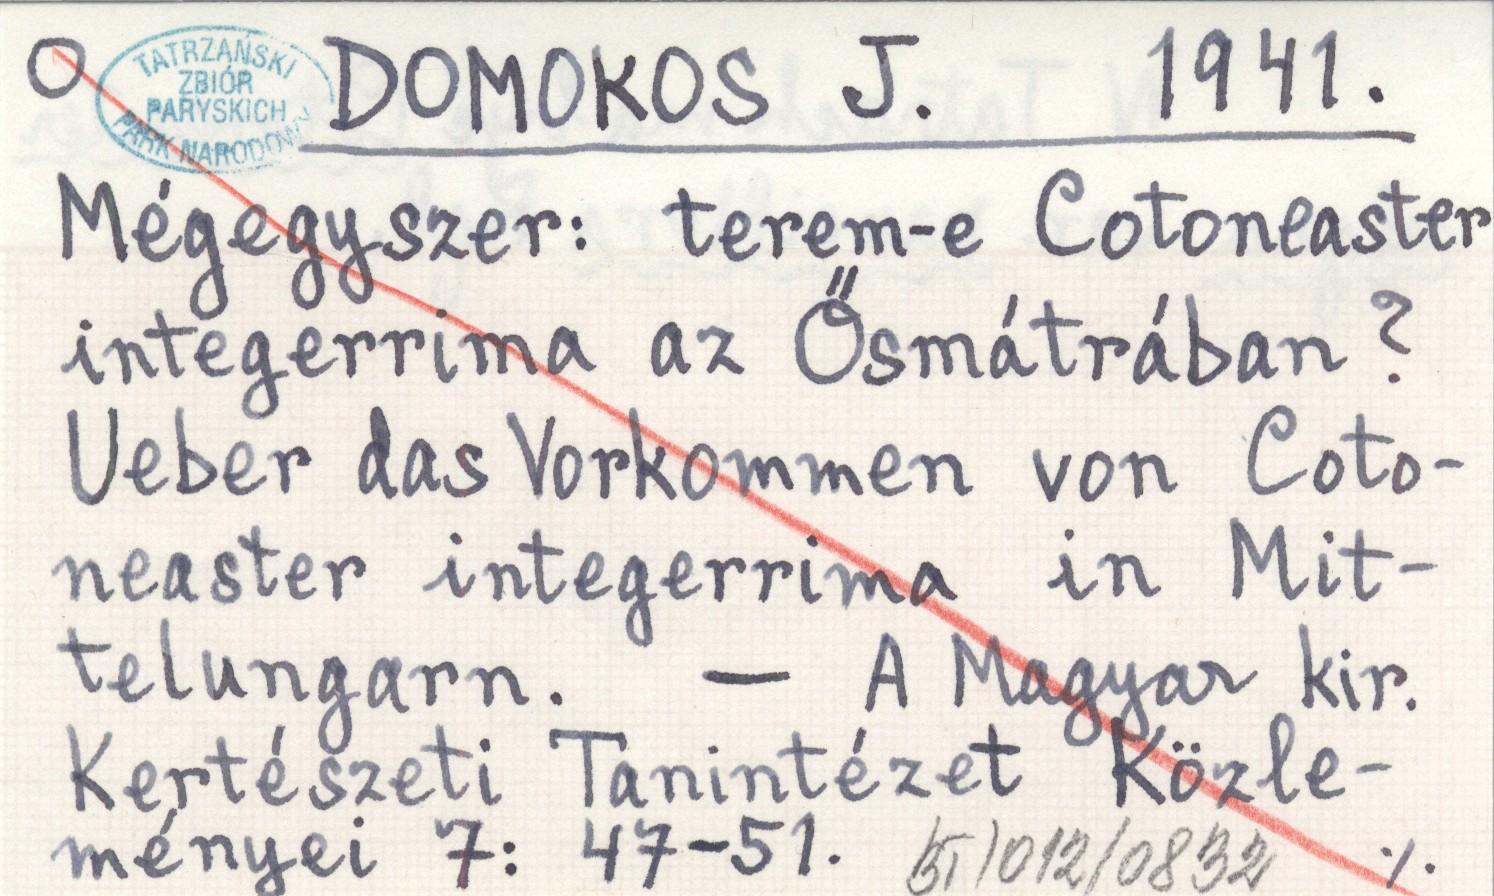 O DOMOKOS J. 1941.
TATRZAŃSKI
ZBIÓR
PARYSKICH
PARK NARODOWY
Mégegyszer: terem-e Cotoneaster
integerrima az Ősmátrában?
Ueber das Vorkommen von Coto-
neaster integerrima in Mit-
telungarn. — A Magyar kir.
Kertészeti Tanintézet Közle-
ményei 7: 47-51. ·/.
/012/0832